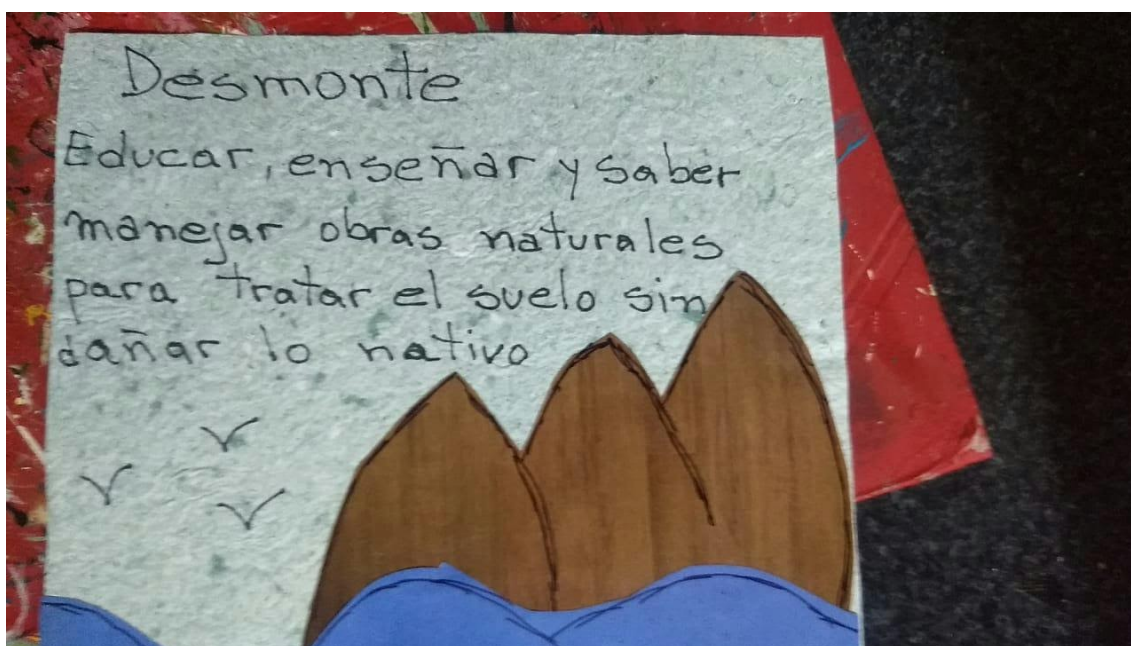 Desmonte
Educar, enseñar y saber
manejar obras naturales
para tratar el suelo sin
dañar lo nativo